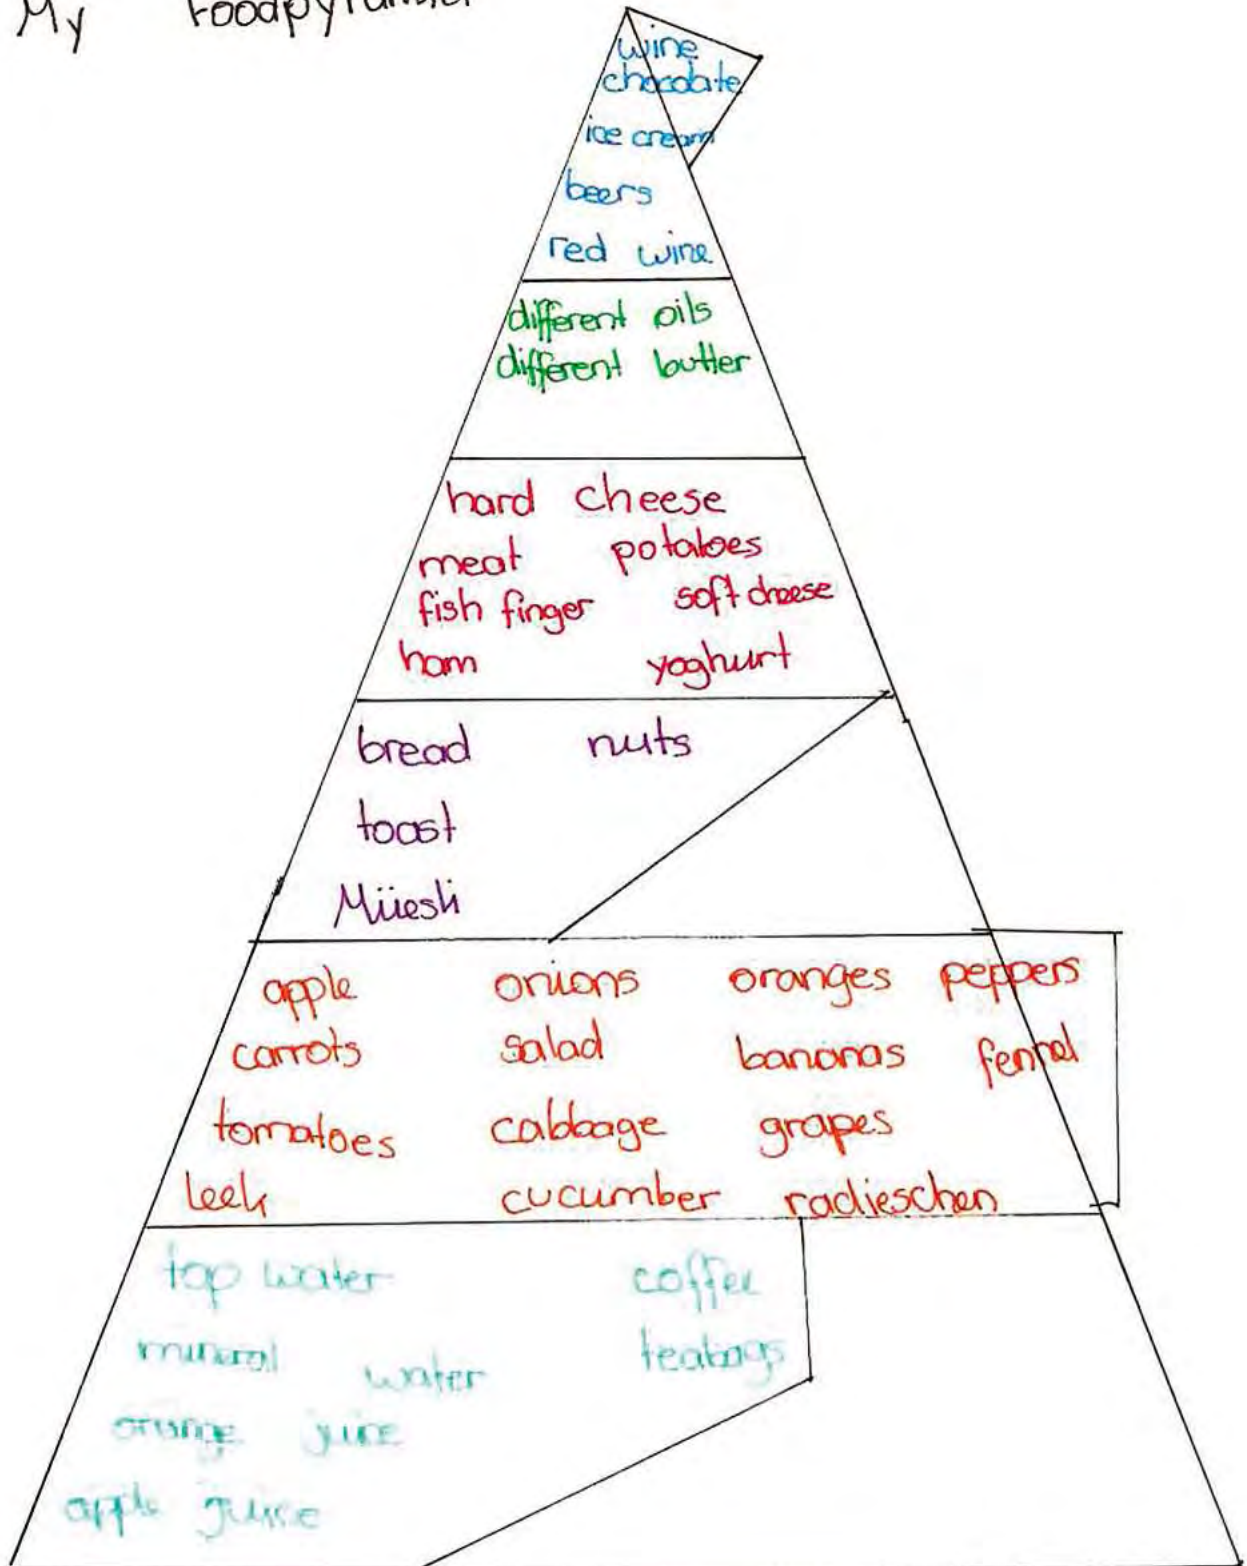 My Foodpyramid
wine
chocolate
ice cream
beers
red wine
different oils
different butter
hard cheese
meat potatoes
fish finger soft cheese
ham yoghurt
bread nuts
toast
Müesli
apple onions oranges peppers
carrots salad bananas fennel
tomatoes cabbage grapes
leek cucumber radieschen
tap water coffee
mineral water teabags
orange juice
apple juice